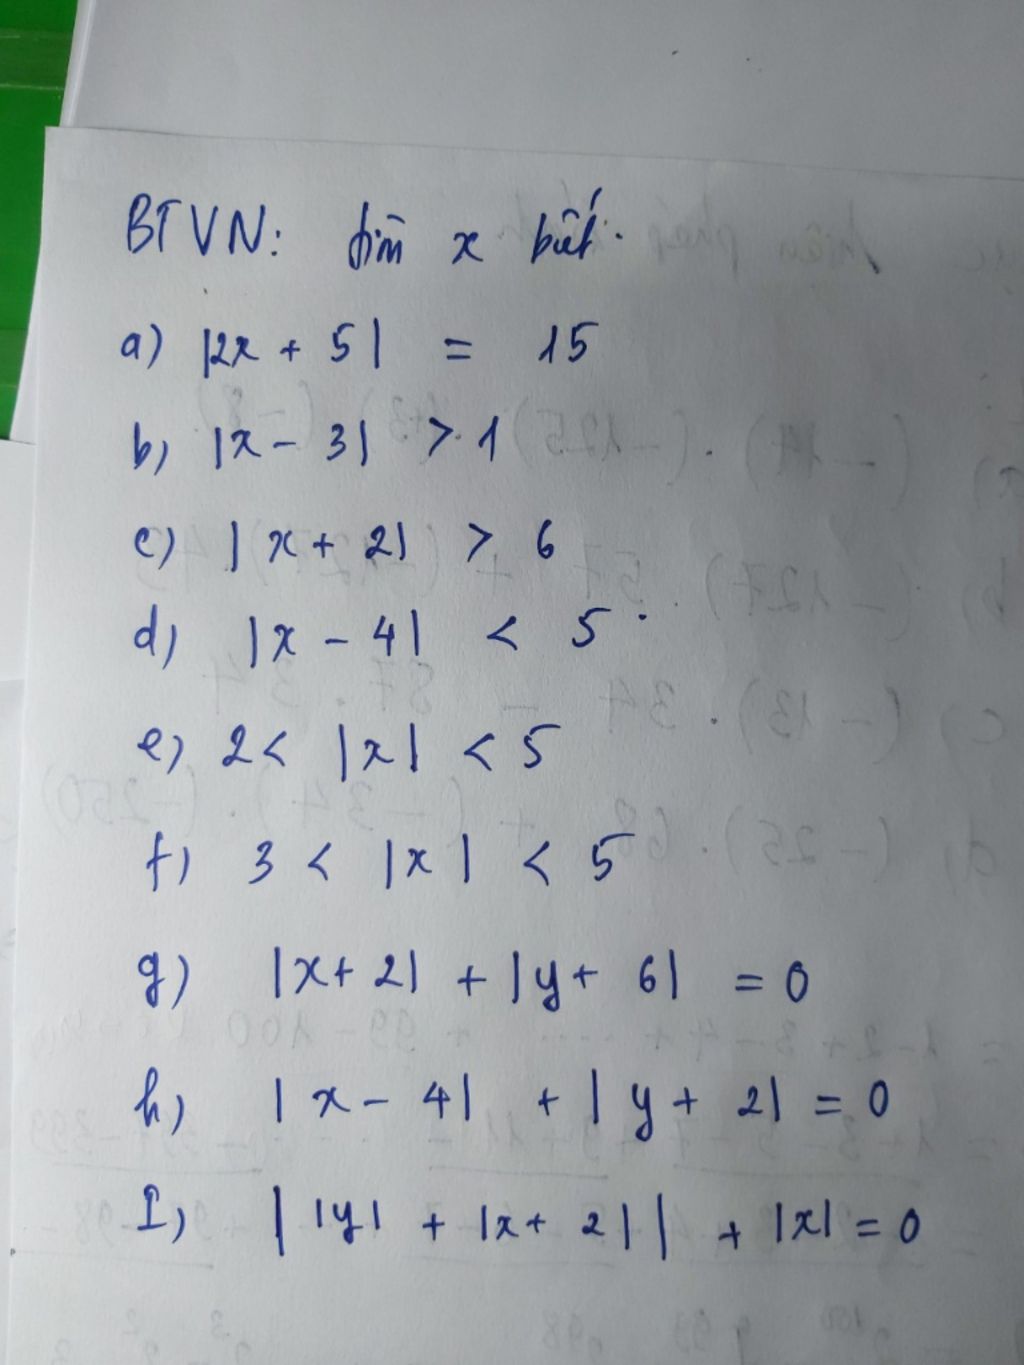 BTVN: tìm x biết.
a) |2x + 5| = 15
b) |x - 3| > 1
c) |x + 2| > 6
d) |x - 4| < 5
e) 2 < |x| < 5
f) 3 < |x| < 5
g) |x + 2| + |y + 6| = 0
h) |x - 4| + |y + 2| = 0
I) ||y| + |x + 2|| + |x| = 0